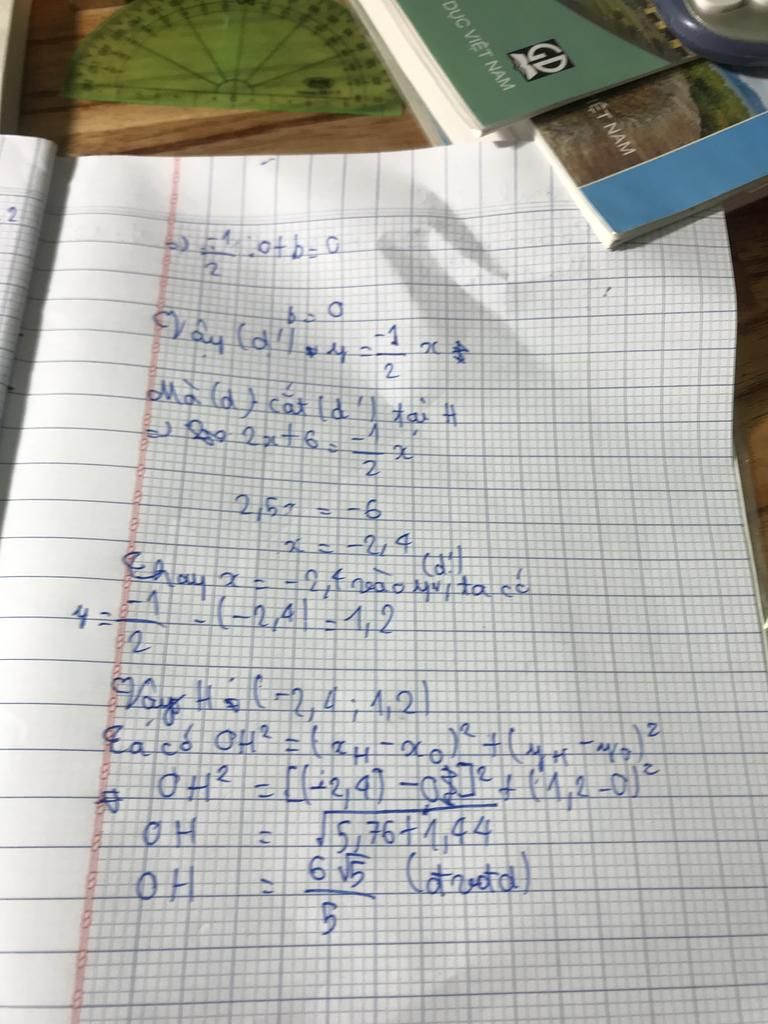 DỤC VIỆT NAM
GD
ỆT NAM
2
=> -1/2 . 0 + b = 0
b = 0
Vậy (d') : y = -1/2 x
Mà (d) cắt (d') tại H
=> 2x + 6 = -1/2 x
2,5x = -6
x = -2,4
(d')
Thay x = -2,4 vào, ta có
y = -1/2 . (-2,4) = 1,2
Vậy H (-2,4 ; 1,2)
Ta có OH² = (x_H - x_O)² + (y_H - y_O)²
OH² = [(-2,4) - 0]² + (1,2 - 0)²
OH = √(5,76 + 1,44)
OH = 6√5/5 (đvđd)